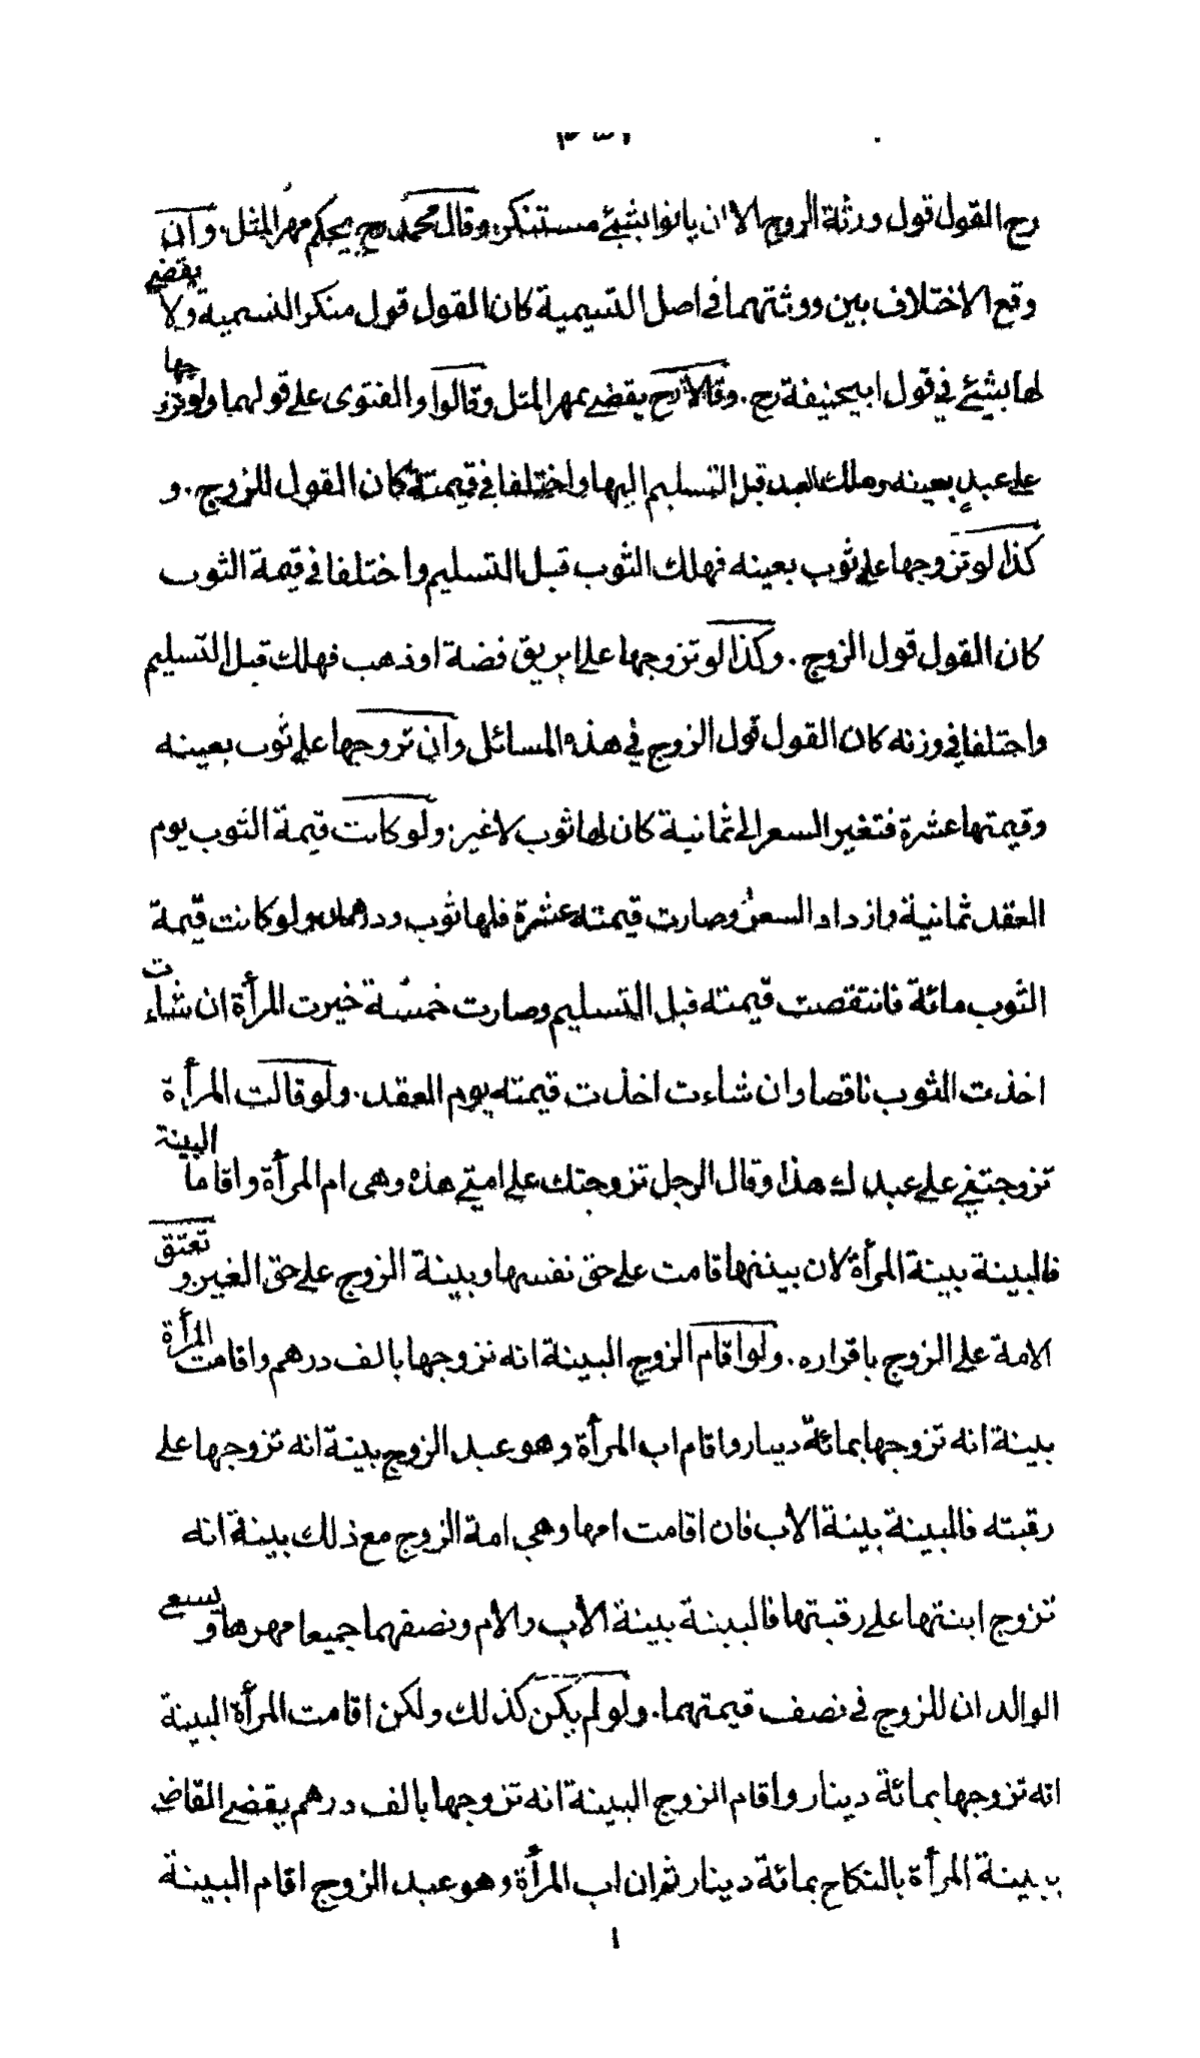 رح القول قول ورثة الزوج الا ان ياتوا بشئ مستنكر. وقال محمد رح يحكم مهر المثل. وان
وقع الاختلاف بين وورثتهما في اصل التسمية كان القول قول منكر التسمية ولا يقضى
لها بشئ في قول ابيحنيفة رح. وقالا رح يقضى بمهر المثل وقالوا والفتوى على قولهما ولو تزوجها
على عبد بعينه وهلك العبد قبل التسليم اليها واختلفا في قيمته كان القول للزوج. و
كذا لو تزوجها على ثوب بعينه فهلك الثوب قبل التسليم واختلفا في قيمة الثوب
كان القول قول الزوج. وكذا لو تزوجها على ابريق فضة او ذهب فهلك قبل التسليم
واختلفا في وزنه كان القول قول الزوج في هذه المسائل وان تزوجها على ثوب بعينه
وقيمتها عشرة فتغير السعر الى ثمانية كان لها ثوب لا غير. ولو كانت قيمة الثوب يوم
العقد ثمانية وازداد السعر وصارت قيمته عشرة فلها ثوب ودرهمان ولو كانت قيمة
الثوب مائة فانتقصت قيمته قبل التسليم وصارت خمسة خيرت المرأة ان شاءت
اخذت الثوب ناقصا وان شاءت اخذت قيمته يوم العقد. ولو قالت المرأة
تزوجتني على عبدك هذا وقال الرجل تزوجتك على امتي هذه وهى ام المرأة واقاما البينة
فالبينة بينة المرأة لان بينتها قامت على حق نفسها وبينة الزوج على حق الغير. و تعتق
الامة على الزوج باقراره. ولو اقام الزوج البينة انه تزوجها بالف درهم واقامت المرأة
بينة انه تزوجها بمائة دينار واقام اب المرأة وهو عبد الزوج بينة انه تزوجها على
رقبته فالبينة بينة الاب فان اقامت امها وهي امة الزوج مع ذلك بينة انه
تزوج ابنتها على رقبتها فالبينة بينة الاب والام ونصفهما جميعا مهرها و يسعى
الوالدان للزوج في نصف قيمتهما. ولو لم يكن كذلك ولكن اقامت المرأة البينة
انه تزوجها بمائة دينار واقام الزوج البينة انه تزوجها بالف درهم يقضى القاضى
ببينة المرأة بالنكاح بمائة دينار ثم ان اب المرأة وهو عبد الزوج اقام البينة